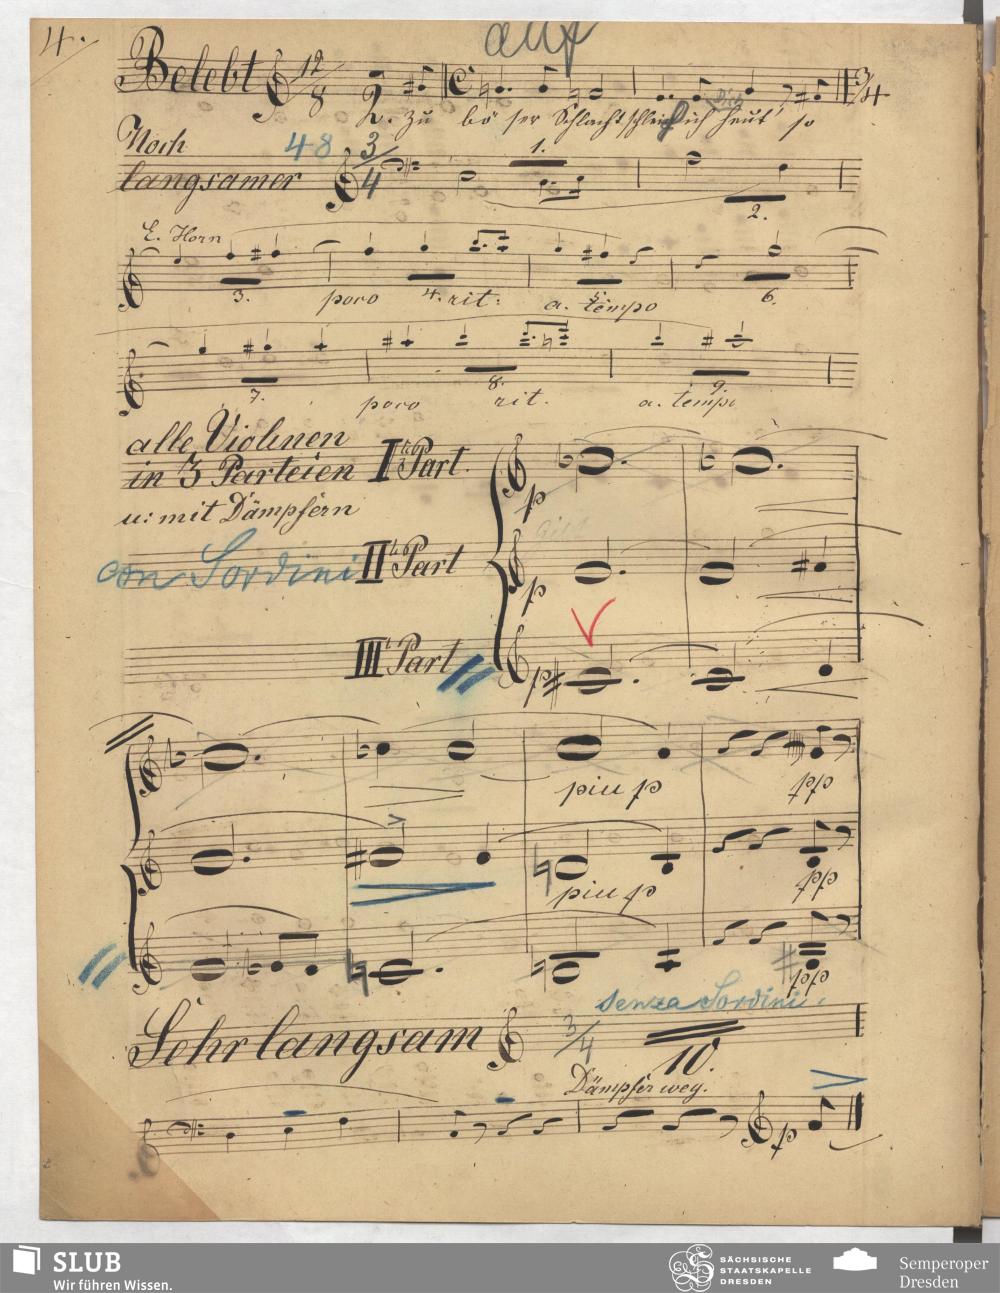 4.
auf
Belebt 12/8 C 3/4
2. zu bö ser Schlacht schleich ich heut' so
dich
Noch
langsamer 48 3/4 1. 2.
E. Horn
3. poco 4. rit: a. tempo 5. 6.
7. poco 8. rit. a. tempo 9.
alle Violinen
in 3 Parteien
u: mit Dämpfern
I te Part.
p
con Sordini
II te Part
p
III te Part
p
piu p pp
piu p pp
pp
senza Sordini.
Sehr langsam 3/4 10.
Dämpfer weg.
p
SLUB
Wir führen Wissen.
SÄCHSISCHE
STAATSKAPELLE
DRESDEN
Semperoper
Dresden